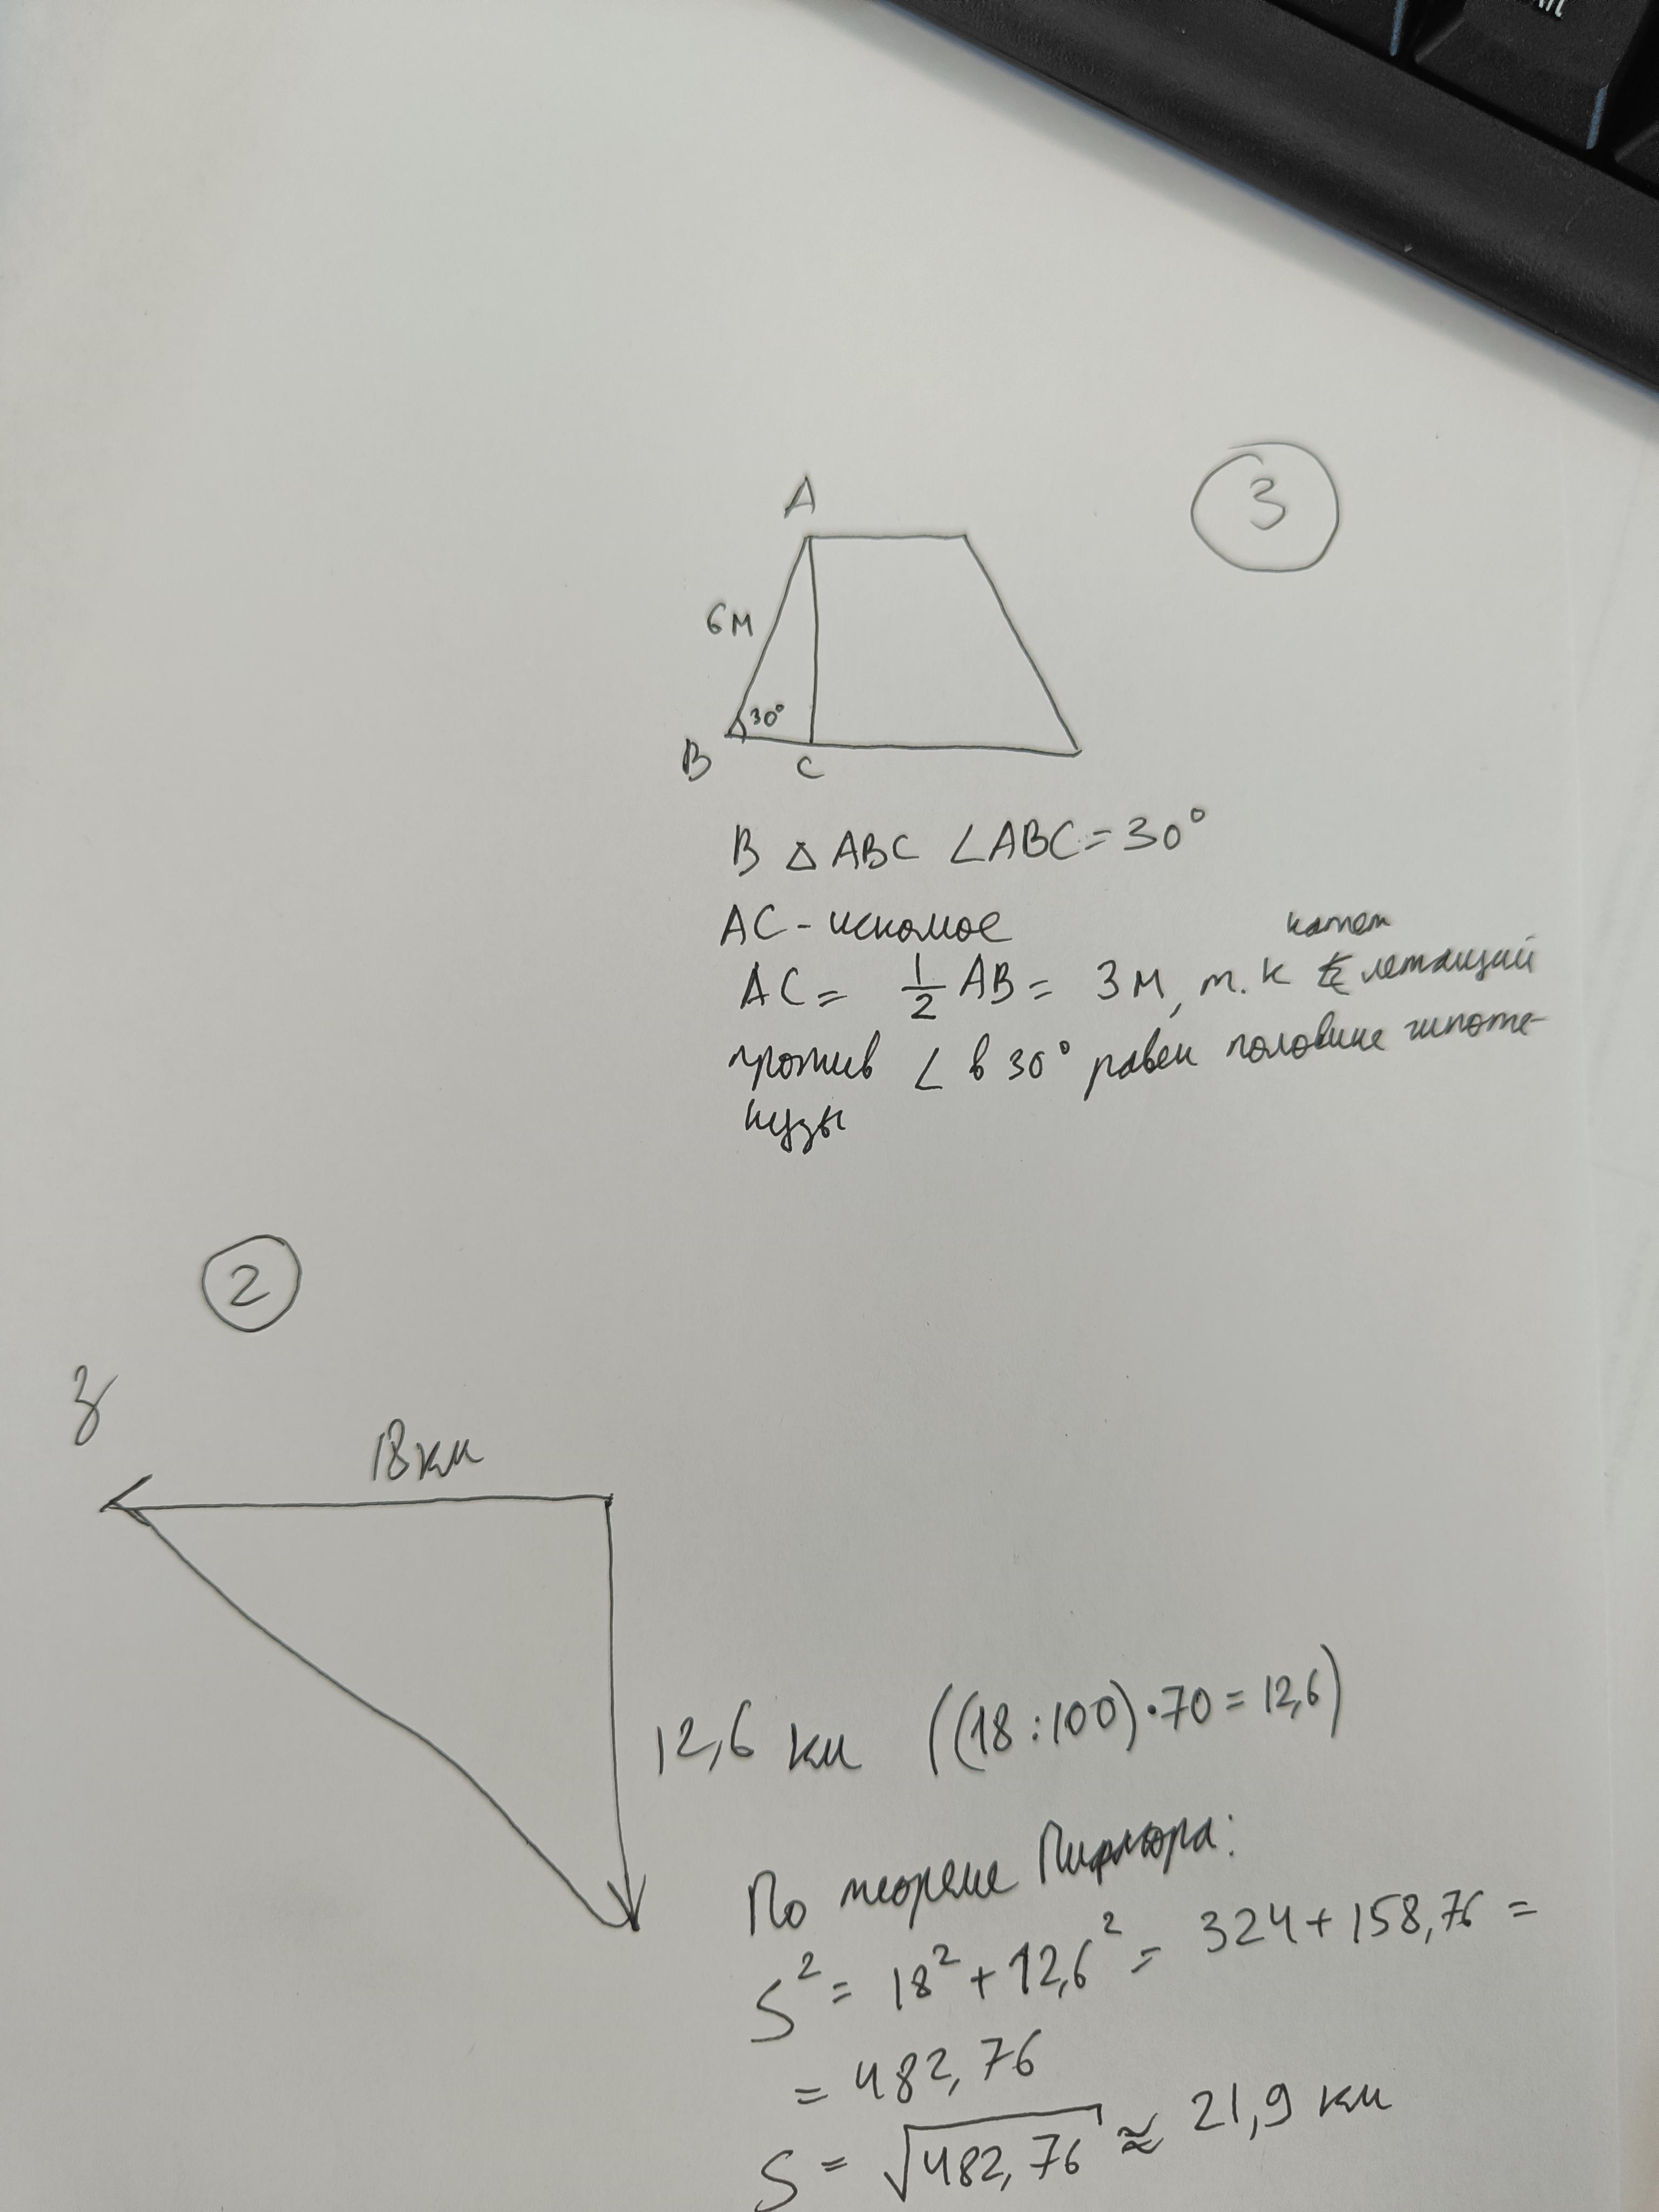 3
A
6м
30°
B
C
В △ ABC ∠ABC = 30°
AC - искомое
катет
AC = 1/2 AB = 3 м, т.к лежащий
против ∠ в 30° равен половине гипоте-
нузы
2
З
18 км
12,6 км ((18:100)·70 = 12,6)
По теореме Пифагора:
S² = 18² + 12,6² = 324 + 158,76 =
= 482,76
S = √482,76 ≈ 21,9 км